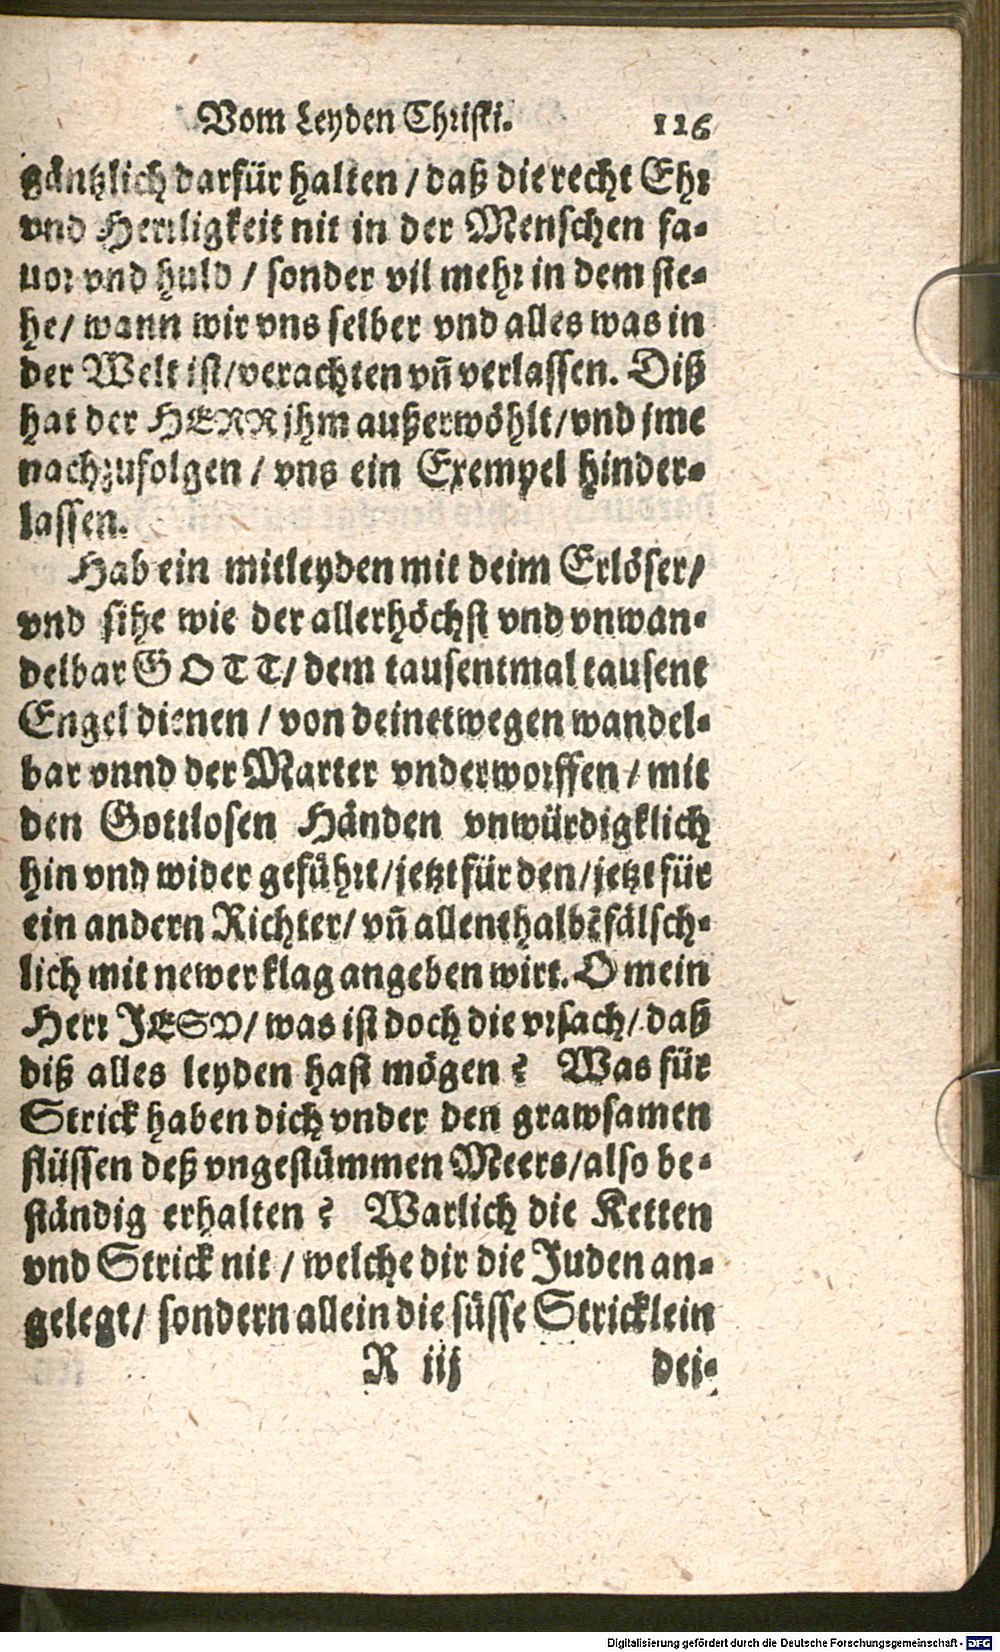 Vom Leyden Christi. 126
gäntzlich darfür halten / daß die recht Ehr
vnd Herrligkeit nit in der Menschen fa-
uor vnd huld / sonder vil mehr in dem ste-
he / wann wir vns selber vnd alles was in
der Welt ist / verachten vn̄ verlassen. Diß
hat der HERR jhm außerwöhlt / vnd jme
nachzufolgen / vns ein Exempel hinder-
lassen.
Hab ein mitleyden mit deim Erlöser /
vnd sihe wie der allerhöchst vnd vnwan-
delbar GOTT / dem tausentmal tausent
Engel dienen / von deinetwegen wandel-
bar vnnd der Marter vnderworffen / mit
den Gottlosen Händen vnwürdigklich
hin vnd wider geführt / jetzt für den / jetzt für
ein andern Richter / vn̄ allenthalbē fälsch-
lich mit newer klag angeben wirt. O mein
Herr JESV / was ist doch die vrsach / daß
diß alles leyden hast mögen? Was für
Strick haben dich vnder den grawsamen
flüssen deß vngestümmen Meers / also be-
ständig erhalten? Warlich die Ketten
vnd Strick nit / welche dir die Juden an-
gelegt / sondern allein die süsse Stricklein
R iij dei-
Digitalisierung gefördert durch die Deutsche Forschungsgemeinschaft - DFG